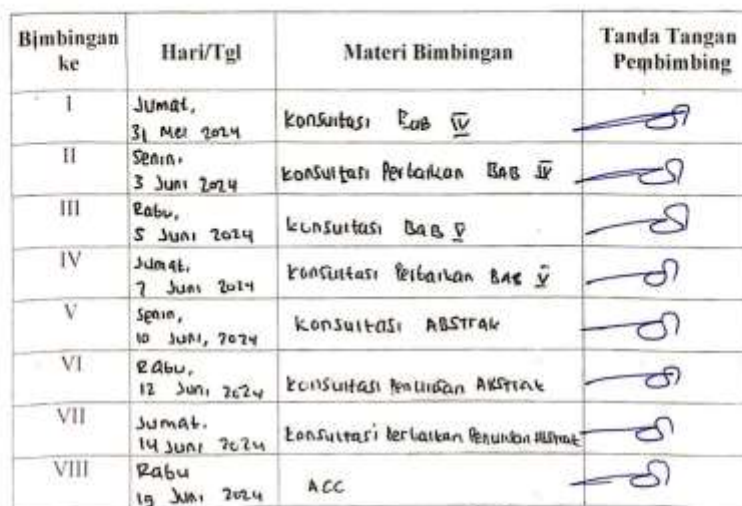 Bimbingan ke
Hari/Tgl
Materi Bimbingan
Tanda Tangan Pembimbing
I
Jumat,
31 Mei 2024
Konsultasi BAB IV
II
Senin,
3 Juni 2024
Konsultasi Perbaikan BAB IV
III
Rabu,
5 Juni 2024
Konsultasi BAB V
IV
Jumat,
7 Juni 2024
Konsultasi Perbaikan BAB V
V
Senin,
10 Juni, 2024
Konsultasi ABSTRAK
VI
Rabu,
12 Juni 2024
Konsultasi Penulisan ABSTRAK
VII
Jumat,
14 Juni 2024
Konsultasi Perbaikan Penulisan Abstrak
VIII
Rabu
19 Juni 2024
ACC